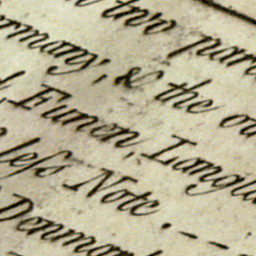 two par
ermany; & the ou
Funen, Langla
leſs Note. --
Denmar